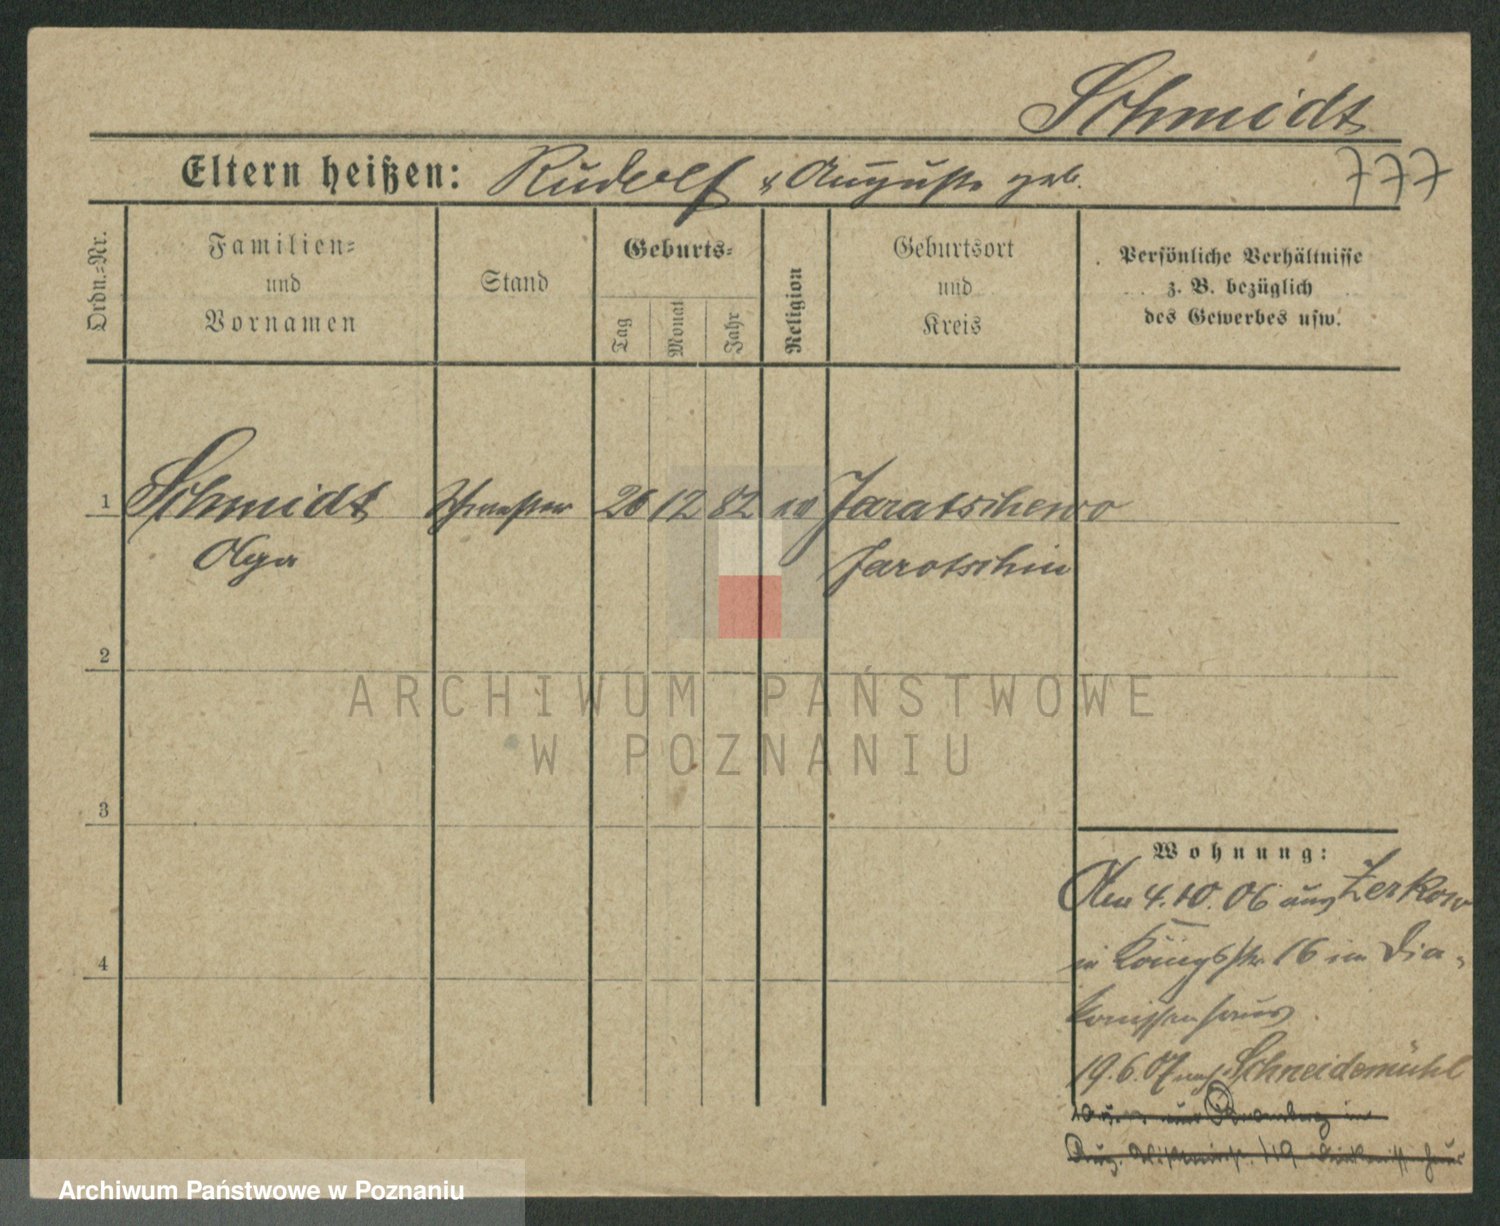 Schmidt
Eltern heißen: Rudolf & Auguste geb.
777
Ordn.=Nr.
Familien=
und
Vornamen
Stand
Geburts=
Tag
Monat
Jahr
Religion
Geburtsort
und
Kreis
Persönliche Verhältnisse
z. B. bezüglich
des Gewerbes usw.
1 Schmidt Schwester 26 12 82 ev Jaratschewo
Olga Jarotschin
2
3
4
ARCHIWUM PAŃSTWOWE
W POZNANIU
Wohnung:
Am 4.10.06 aus Zerkow
in Königsstr 16 im Dia-
konissenhaus
19.6.07 nach Schneidemühl
aus Bromberg in
119
Archiwum Państwowe w Poznaniu